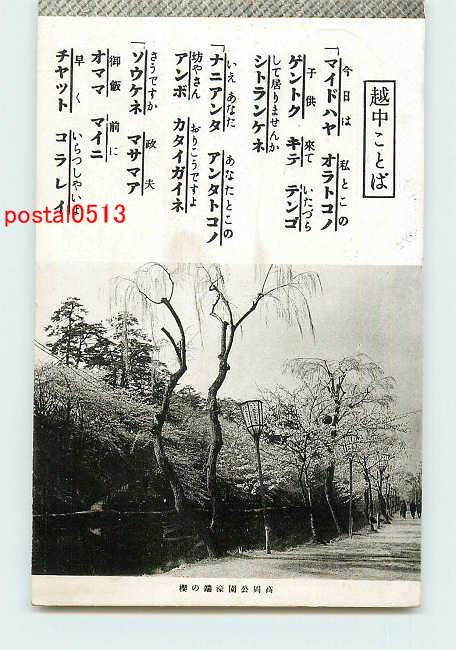 越中ことば
今日は 私とこの
「マイドハヤ オラトコノ
子供 來て いたづら
ゲントク キテ テンゴ
して居りませんか
シトランケネ
いえ あなた あなたとこの
「ナニアンタ アンタトコノ
坊やさん おりこうですよ
アンボ カタイガイネ
さうですか 政夫
「ソウケネ マサマア
御飯 前に
オママ マイニ
早く いらつしやいよ
チヤツト コラレイ
postal0513
高岡公園濠端の櫻